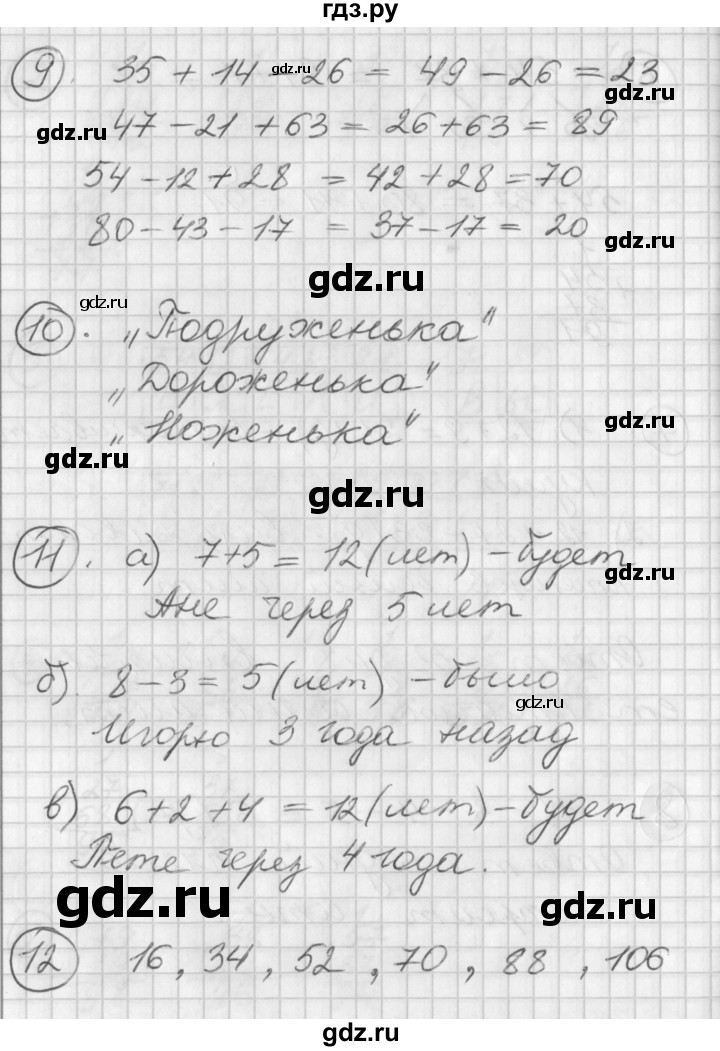 гдз.ру
9. 35 + 14 - 26 = 49 - 26 = 23
gdz.ru
gdz.ru
47 - 21 + 63 = 26 + 63 = 89
gdz.ru
54 - 12 + 28 = 42 + 28 = 70
80 - 43 - 17 = 37 - 17 = 20
gdz.ru
gdz.ru
gdz.ru
10. „Подруженька"
„Дороженька"
„Ноженька"
gdz.ru
gdz.ru
gdz.ru
11. а) 7+5 = 12 (лет) - будет
gdz.ru
Ане через 5 лет
б). 8 - 3 = 5 (лет) - было
gdz.ru
Игорю 3 года назад
в) 6 + 2 + 4 = 12 (лет) - будет
Пете через 4 года.
gdz.ru
gdz.ru
12 16, 34, 52, 70, 88, 106
gdz.ru